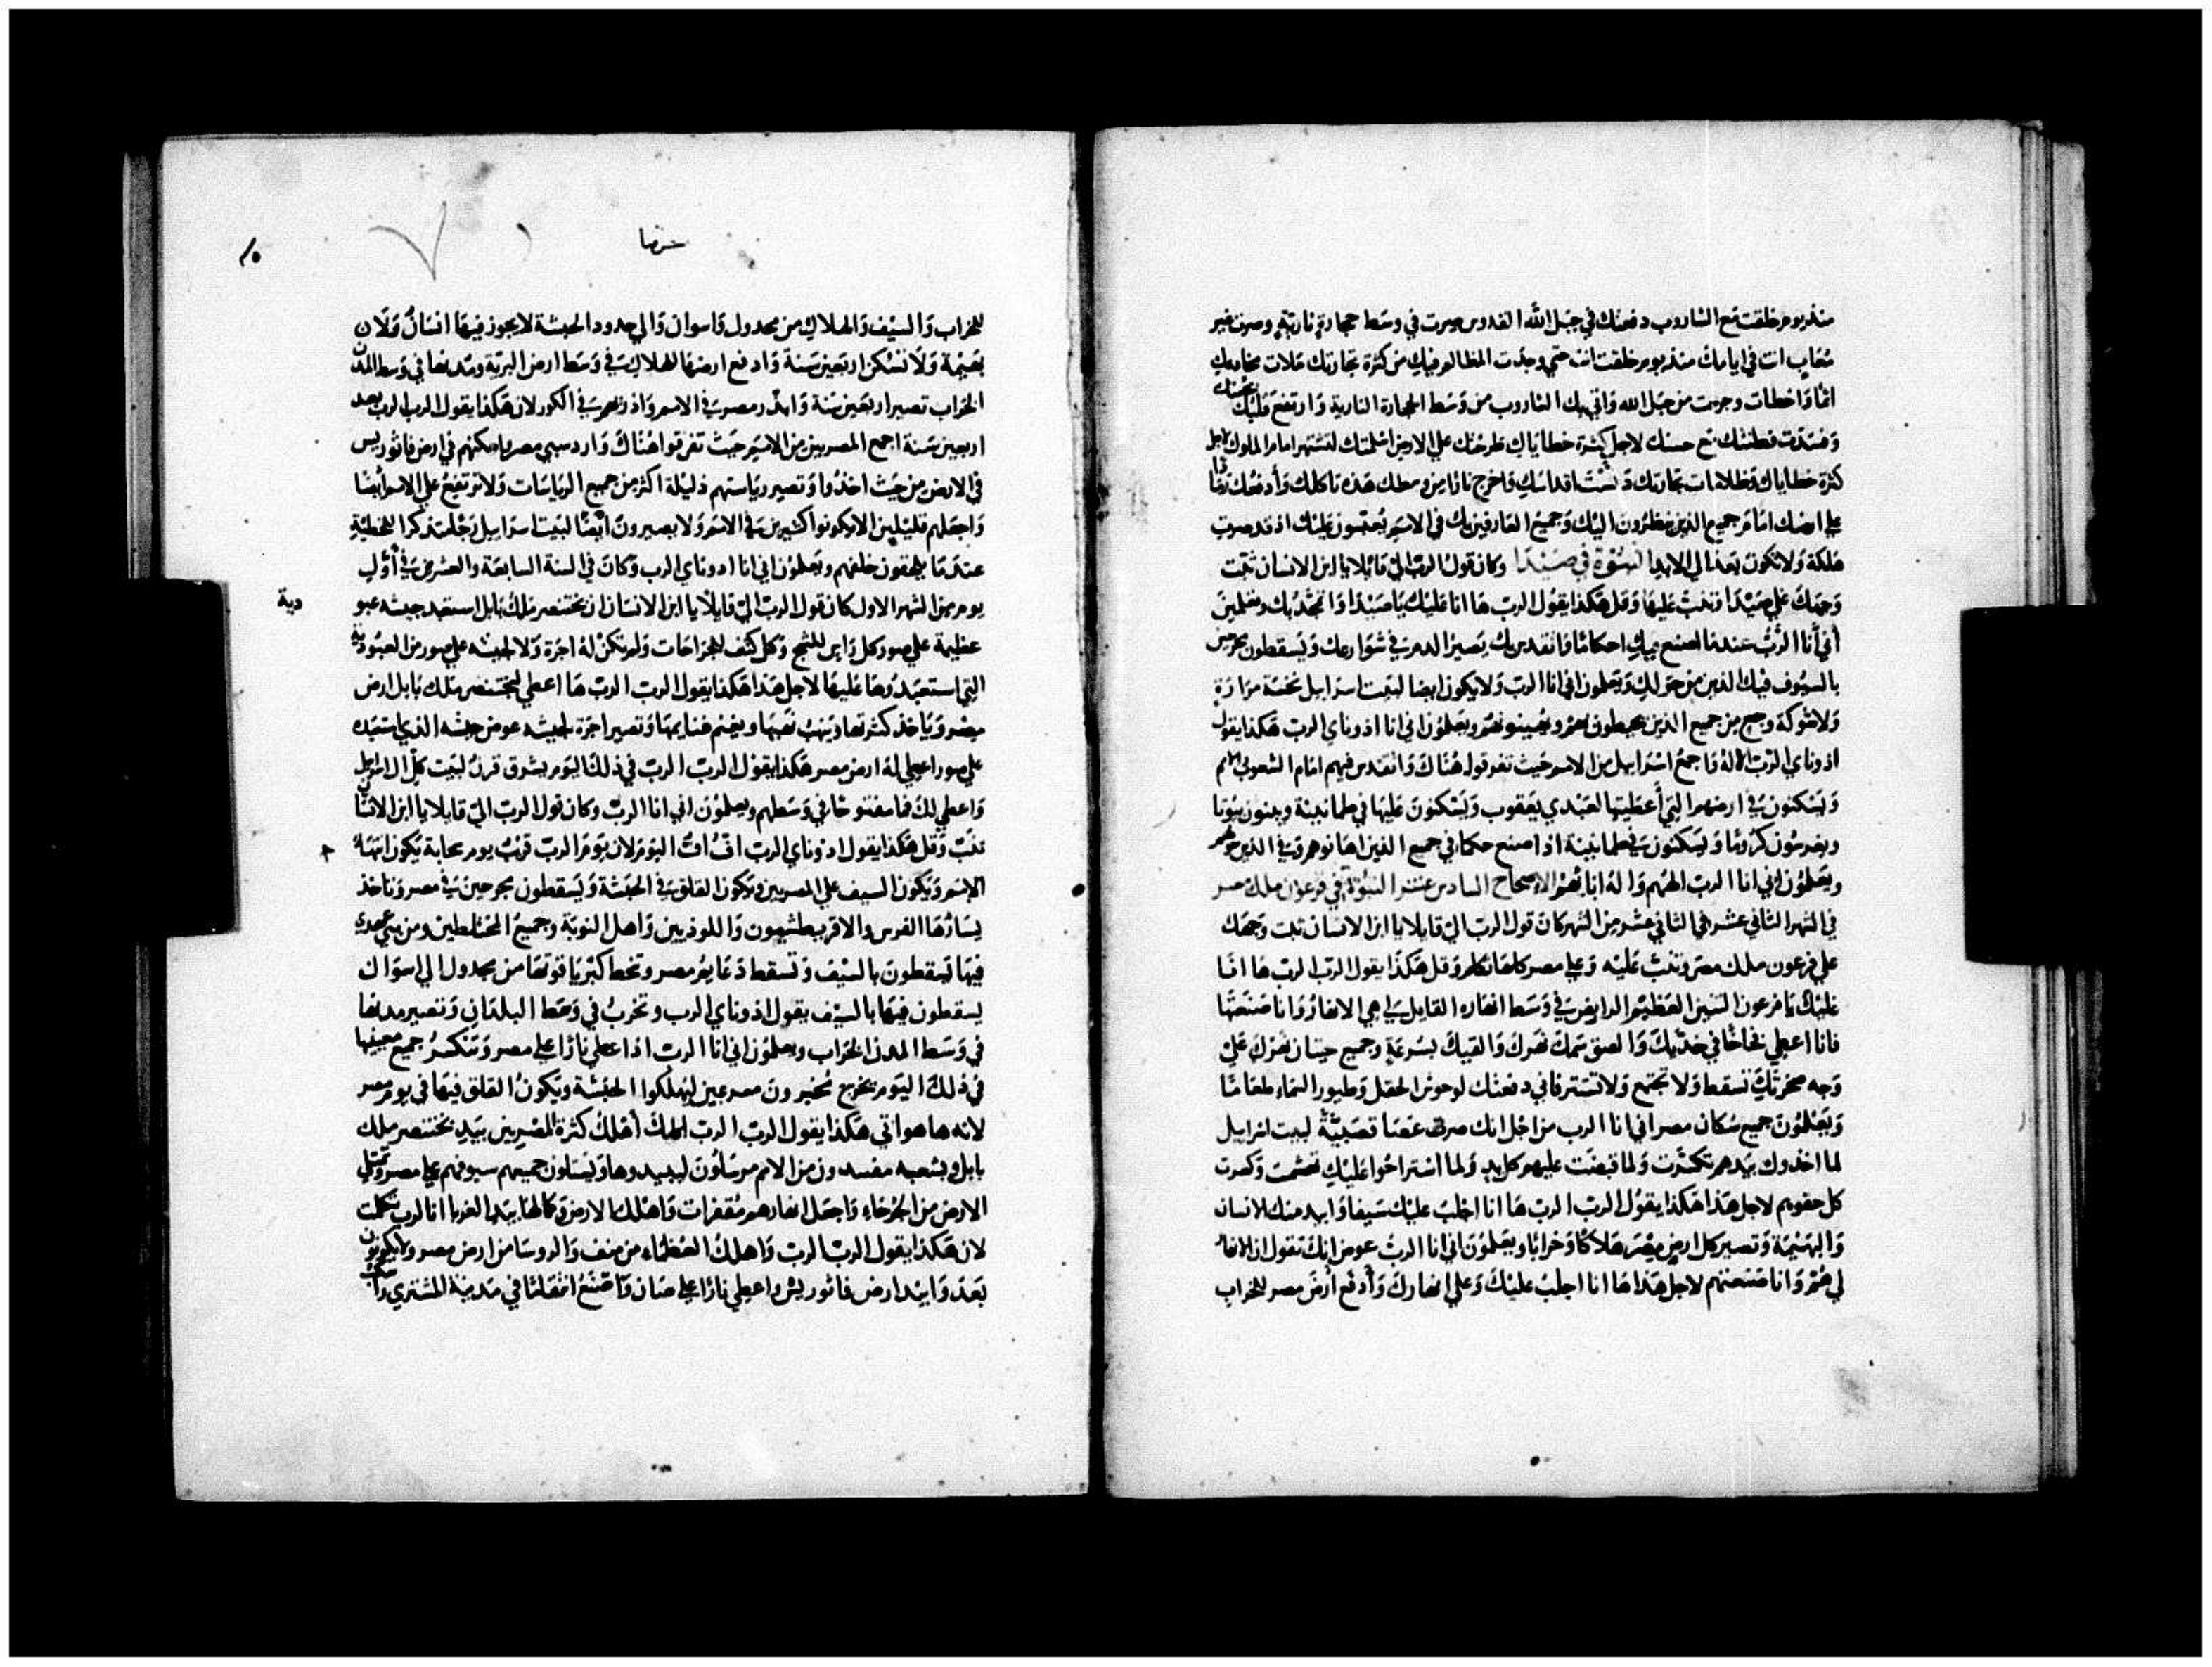 منذ يوم خلقت مع الشاروب دفعتك في جبل الله القدوس صرت في وسط حجارة نارية وصرت غير
مُعَاب انت في ايامك منذ يوم خلقت انت حتى وجدت المظالم فيك من كثرة تجارتك ملات مخادعك
اثمًا وَاخطات وجرحت من جبل الله وَاقبيك الشاروب من وَسَط الحجارة النارية وَارتفع قلبك بحسنك
وَفسَدَت فطنتك مع حسنك لاجل كثرة خطاياك طرحتك على الارض اسلمتك لتشتهر امام الملوك لاجل
كثرة خطاياك وَظلامات تجارتك دنست اقداسك فاخرج نارًا من وسطك هذه تاكلك وَأدفعك رمادًا
على ارضك امَام جميع الذين ينظرُون اليك وَجميع العَارفين بك في الامَم يُعبّسون عَليْك اذ قد صرت
هَلكة وَلا تكون بَعد الى الابد النبُوّة في صَيْدَا وكان قول الربّ اليّ قائلا يا ابن الانسان ثبت
وَجهَك على صَيْدَا وَتنبّ عَليهَا وَقل هَكذا يقول الرب هَا انا عَليْك يَا صَيْدا وَاتمجّد بك وَتعلمين
أني أنا الرَّبُّ عندمَا اصنع بيك احكامًا وَاتقدس بك يَصيرُ الدم في شوَارعك وَيَسقطون مجرحين
بالسيُوف فيك الذين من حَولك وَيَعلمون اني انا الربّ وَلا يكون ايضا لبَيت اسرَايل نخسة مرَارَةٍ
وَلا شوكة وجع من جميع الذين يحيطون بهم ويُهينونهم ويعلمُون اني انا ادوناي الربّ هَكذا يقول
ادوناي الربّ الالهُ وَاجمعُ اسْرَايل من الامم حَيث تفرقوا هُنَاك وَاتقدس فيهم امَام الشعوب الامم
وَيَسْكنون في ارضهم التي أعطَيتها لعَبْدي يَعقوب وَيَسْكنون عَليهَا في طمانينة ويبنون بيُوتا
ويغرسُون كرُومًا وَيَسْكنُون في طمانينَة اذا اصنع حكمًا في جميع الذين اهَانوهم في الذين حولهم
ويَعلمُون اني انا الربّ الههُم وَاله ابائهم الاصحاح السادس عشر النبُوة في فرعون ملك مصر
في الشهر الثاني عشر في الثاني عشر من الشهر كان قول الربّ اليّ قايلا يا ابن الانسان ثبت وَجهَك
على فرعون ملك مصر وتنبّ عَليْه وَعلى مصر كلهَا تكلم وَقل هَكذَا يقول الربّ الربّ هَا انَا
عَليْك يَا فرعون التنين العَظيم الرابض في وَسَط انهَاره القايل لي هي الانهَارُ وَانا صَنعتهَا
فانا اعطي فخاخًا في خدّيك وَالصق سَمك نهرك وَالقيك بسُرعَةٍ وجميع حيتان نهرك عَلى
وَجه صحرتك تسقط وَلا تجتمع وَلا تسَتر فاني دفعتك لوحوش الحقل وَطيور السمَاء طعَامًا
وَيَعْلمُون جميع سُكان مصر اني انا الرب من اجل انك صرت عَصَا قصَبيَّةً لبيت اسرايل
لما اخذوك بيَدهم تكسّرت وَلما قبضت عليهم كل يدٍ وَلما استراحُوا عَليْك تهشمت وَكسرت
كل حقويهم لاجل هَذا هَكذا يقولُ الربّ الربّ هَا انا اجلبُ عَليْك سَيفا وَابيد منك الانسان
وَالبهيْمَة وَتصير كل ارض مِصْر هَلاكًا وَخرَابًا وَيعلمُون اني انا الربّ عوض انك تقول ان الانهار
لي هُم وَانا صَنعتهم لاجل هَذا هَا انا اجلبُ عَليْك وَعلى انهارك وَأدفع أرْض مصر للخراب
شرضا
للخراب وَالسيْف وَالهلاك من مجدول وَاسوان وَالى حدود الحبشة لا يجوز فيهَا انسَانٌ وَلا ن
بَهيْمة وَلا تسْكن اربَعين سَنة وَادفع ارضهَا للهلاك في وَسَط ارض البريّة ومدنها في وَسط المدن
الخراب تصير اربَعين سَنة وَابذّر مصر في الامم وَاذريهم في الكور لان هَكذا يقول الرب الرب بعد
اربعين سَنة اجمع المصريين من الامم حَيث تفرقوا هُنَاكَ وَاردّ سبي مصر وَاسكنهم في ارض فاثوريس
في الارض من حَيث اخذُوا وَتصير ريَاستهم ذليْلة اكثر من جميع الريَاسَات وَلا ترتفع على الامم ايْضا
وَاجعَلهم قليْلين الا يكونوا كثيرين في الامم وَلا يصيرون ايْضا لبَيت اسرايل رَجَا متذكرا للخطيّة
عندَ مَا يلحقون خلفهم ويعلمُون اني انا ادوناي الرب وَكان في السنة السابعَة والعشرين في أوّل
يوم من الشهر الاول كان قول الربّ اليّ قايلا يا ابن الانسَان ان بختنصر ملك بابل استعبد جيشه عبو
دية
عظيمة على صور كل رَاسٍ للثلج وَكل كتف للجرَاحَات وَلم تكن لهُ اجرَة وَلا لجيشه على صور من العبُودية
التي استعبَدُوهَا عَليهَا لاجل هَذا هَكذا يقول الرب الربّ هَا اعطي لبختنصر ملك بابل ارض
مِصْر وَيَاخذ كثرتها وَينهبُ نهبَهَا ويغنم غنايمهَا وَتصير اجرَة لجيشه عوض جيشه الذي استعبَد
على صور اعطي لهُ ارض مصر هَكذا يقول الربّ الربّ في ذلكَ اليَوم يشرق قرنٌ لبَيت كلّ اسرَايل
وَاعطي لكَ فمًا مفتوحًا في وَسَطهم ويعلمُون اني انا الربّ وكان قول الربّ اليّ قايلا يا ابن الانسَان
تنبّ وَقل هَكذا يقول ادوناي الربّ افّ افّ اليَوم لان يَوم الربّ قربُ يوم سحابة يَكون انتهَاء
الامَم وَيَكون السيف على المصريين وَيكون القلق في الحبَشة وَيَسقطون مجرحينَ في مصر وَتاخذ
يسَارُهَا الفرس والاقريطشيون وَاللوديين وَاهل النوبَة وجميعُ المختلطين ومن بني عهدي
فيهَا يَسقطون بالسيْف وَتسقط دَعَايمُ مصر وتحط كبريَا قوتها من مجدول الى اسوَان
يسقطون فيهَا بالسيْف يقول ادوناي الرب وتخربُ في وَسَط البلدَان وَتصير مدنها
في وَسَط المدن الخرَاب ويعلمُون اني انا الربّ اذا اعطي نارًا على مصر وَتنكسرُ جميع معينيها
في ذلكَ اليَوم يخرج مُخبرون مسرعين ليُهلكوا الحبَشة ويَكونُ القلق فيهَا في يوم مصر
لانه ها هو اتي هَكذا يقول الربّ الربّ اهلك أهْلكُ كثرَة المصْريين بيَدِ بختنصر ملك
بابل وبشعبه مفسدون من الامم مرسَلون ليبيدوها وَيسَلون جميعهم سيوفهم على مصر وَتمتلي
الارض من الجرحَاءِ وَاجعَل انهارهم مُقفرَات وَاهلك الارض وَكمالهَا بيَد الغربَا انا الرب تكلمت
لان هَكذا يقول الربّ الربّ وَاهلك العُظمَاء من منف وَالروسَا من ارض مصر ولا يكونون
بَعدَ وَابيْد ارض فاثوريس واعطي نارًا على صَان وَاصْنَعُ انتقامًا في مَدينة المشتري